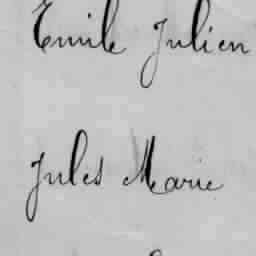 Emile Julien
Jules Marie